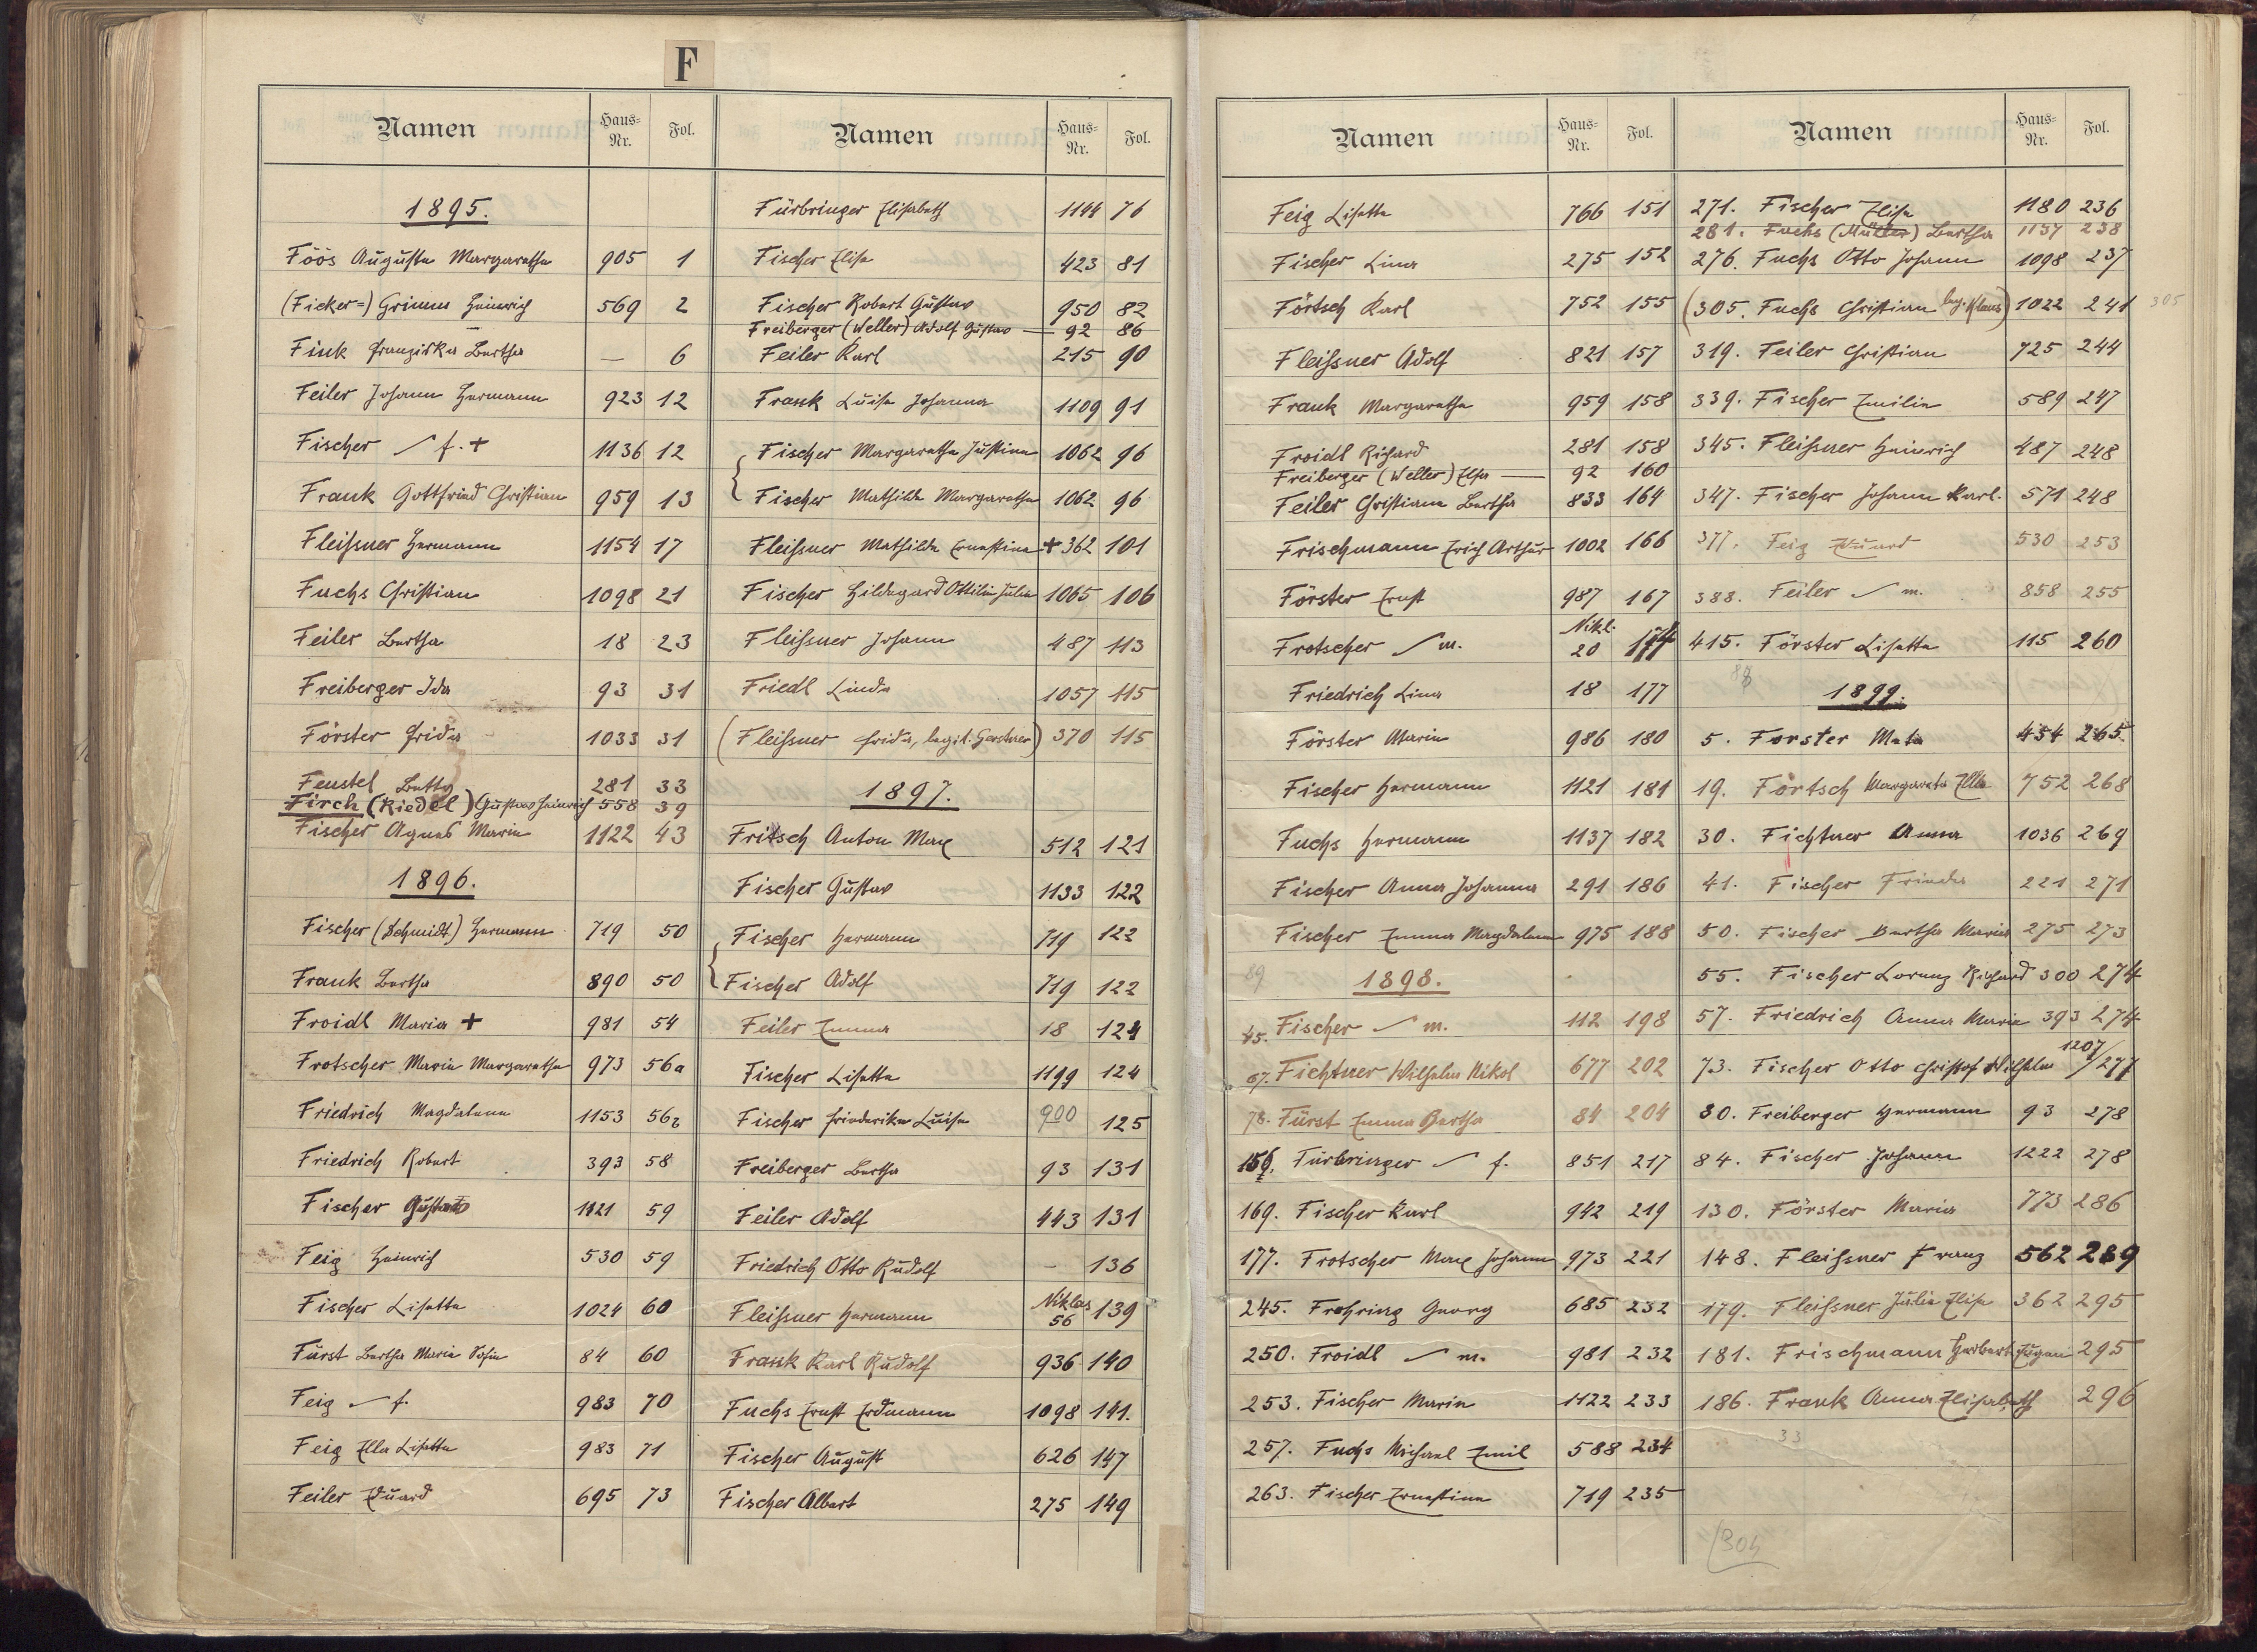 F
Namen Haus-Nr. Fol.
1895.
Föös Auguste Margaretha 905 1
(Ficker=) Grimm Heinrich 569 2
Fink Franziska Bertha — 6
Feiler Johann Hermann 923 12
Fischer f. + 1136 12
Frank Gottfried Christian 959 13
Fleißner Hermann 1154 17
Fuchs Christian 1098 21
Feiler Bertha 18 23
Freiberger Ida 93 31
Förster Frida 1033 31
Feustel Betty 281 33
Firch (Riedel) Gustav Heinrich 558 39
Fischer Agnes Marie 1122 43
1896.
Fischer (Schmidt) Hermann 719 50
Frank Bertha 890 50
Froidl Maria + 981 54
Frotscher Maria Margaretha 973 56a
Friedrich Magdalena 1153 56
Friedrich Robert 393 58
Fischer Gustav 1121 59
Feig Heinrich 530 59
Fischer Lisette 1024 60
Fürst Bertha Maria Sofie 84 60
Feig f. 983 70
Feig Ella Lisette 983 71
Feiler Eduard 695 73
Namen Haus-Nr. Fol.
Fürbringer Elisabeth 1144 76
Fischer Elise 423 81
Fischer Robert Gustav 950 82
Freiberger (Weller) Adolf Gustav — 92 86
Feiler Karl 215 90
Frank Luise Johanna 1109 91
Fischer Margaretha Justine 1062 96
Fischer Mathilde Margaretha 1062 96
Fleißner Mathilde Ernestine + 362 101
Fischer Hildegard Ottilie Julie 1065 106
Fleißner Johann 487 113
Friedl Linda 1057 115
(Fleißner Frida, legit. Gerstner) 370 115
1897.
Fritsch Anton Max 512 121
Fischer Gustav 1133 122
Fischer Hermann 719 122
Fischer Adolf 719 122
Feiler Emma 18 124
Fischer Lisette 1199 124
Fischer Friederike Luise 900 125
Freiberger Bertha 93 131
Feiler Adolf 443 131
Friedrich Otto Rudolf — 136
Fleißner Hermann Niklas 56 139
Frank Karl Rudolf 936 140
Fuchs Ernst Erdmann 1098 141.
Fischer August 626 147
Fischer Albert 275 149
Namen Haus-Nr. Fol.
Feig Lisette 766 151
Fischer Lina 275 152
Förtsch Karl 752 155
Fleißner Adolf 821 157
Frank Margaretha 959 158
Froidl Richard 281 158
Freiberger (Weller) Elsa — 92 160
Feiler Christiana Bertha 833 164
Frischmann Erich Arthur 1002 166
Förster Ernst 987 167
Frotscher m. Nikl. 20 174
Friedrich Lina 18 177
Förster Marie 986 180
Fischer Hermann 1121 181
Fuchs Hermann 1137 182
Fischer Anna Johanna 291 186
Fischer Emma Magdalena 975 188
89
1898.
45. Fischer m. 112 198
67. Fichtner Wilhelm Nikol 677 202
78. Fürst Emma Bertha 84 204
156. Fürbringer f. 851 217
169. Fischer Karl 942 219
177. Frotscher Max Johann 973 221
245. Frohring Georg 685 232
250. Froidl m. 981 232
253. Fischer Marie 1122 233
257. Fuchs Michael Emil 588 234
263. Fischer Ernestine 719 235
Namen Haus-Nr. Fol.
271. Fischer Elise 1180 236
281. Fuchs (Müller) Bertha 1137 238
276. Fuchs Otto Johann 1098 237
(305. Fuchs Christian leg. Klaus) 1022 241 305
319. Feiler Christian 725 244
339. Fischer Emilie 589 247
345. Fleißner Heinrich 487 248
347. Fischer Johann Karl. 571 248
377. Feig Eduard 530 253
388. Feiler m. 858 255
415. Förster Lisette 115 260
88
1899.
5. Forster Meta 454 265.
19. Förtsch Margareta Ella 752 268
30. Fichtner Anna 1036 269
41. Fischer Frieda 221 271
50. Fischer Bertha Maria 275 273
55. Fischer Lorenz Richard 300 274
57. Friedrich Anna Marie 393 274
73. Fischer Otto Christof Wilhelm 1207/277
80. Freiberger Hermann 93 278
84. Fischer Johann 1222 278
130. Förster Maria 773 286
148. Fleißner Franz 562 289
179. Fleißner Julie Elise 362 295
181. Frischmann Herbert Eugen 295
186. Frank Anna Elisabeth 296
33
304